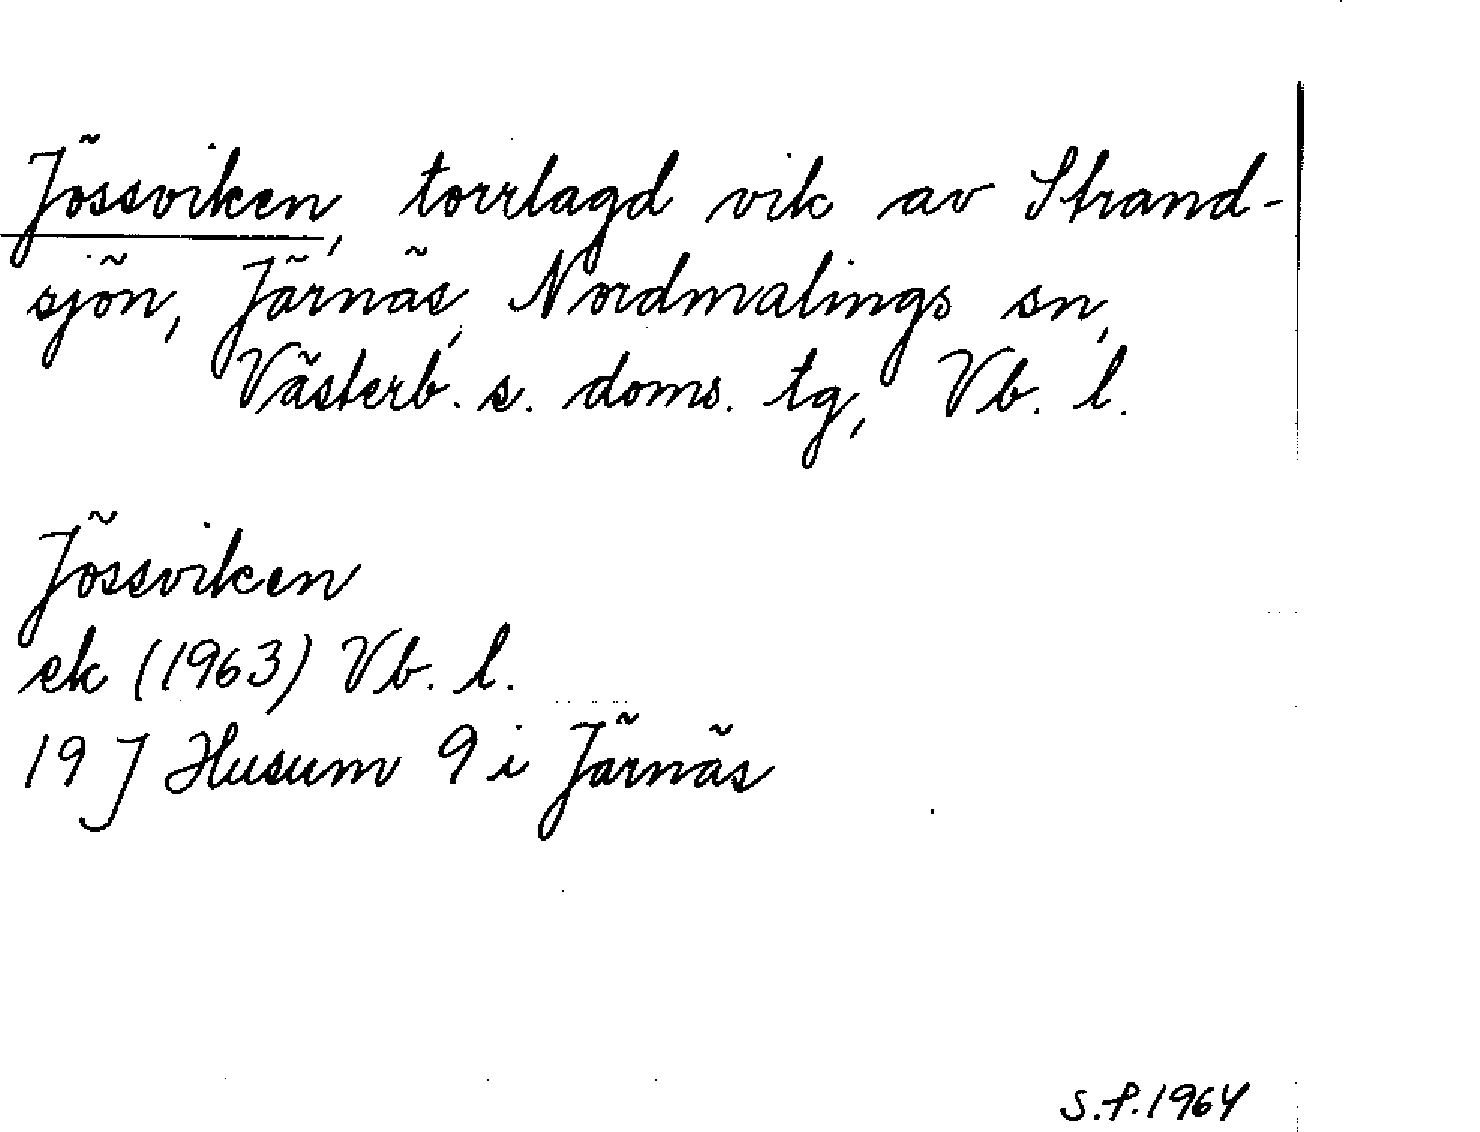 Jössviken, torrlagd vik av Strand-
sjön, Järnäs, Nordmalings sn,
Västerb. s. doms. tg, Vb. l.
Jössviken
ek (1963) Vb. l.
19 J Husum 9 i Järnäs
S.P. 1964